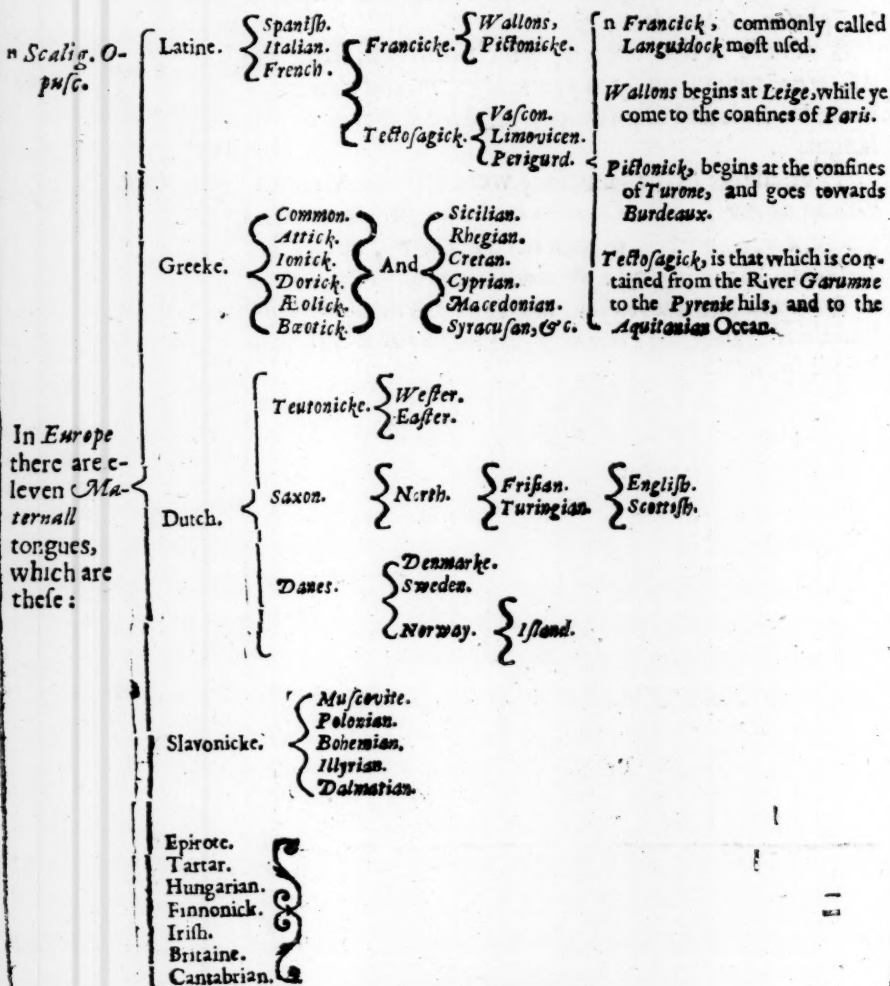 n Scalig. O-
puſc.
In Europe
there are e-
leven Ma-
ternall
tongues,
which are
theſe :
Latine.
Spaniſh.
Italian.
French.
Francicke.
Wallons,
Pictonicke.
Tectoſagick.
Vaſcon.
Limovicen.
Perigurd.
n Francick, commonly called
Languidock moſt uſed.
Wallons begins at Leige, while ye
come to the confines of Paris.
Pictonick, begins at the confines
of Turone, and goes towards
Burdeaux.
Tectoſagick, is that which is con-
tained from the River Garumne
to the Pyrenie hils, and to the
Aquitanian Ocean.
Greeke.
Common.
Attick.
Ionick.
Dorick.
Æolick.
Bæotick.
And
Sicilian.
Rhegian.
Cretan.
Cyprian.
Macedonian.
Syracuſan, &c.
Dutch.
Teutonicke.
Weſter.
Eaſter.
Saxon.
North.
Friſian.
Turingian.
Engliſh.
Scottoſh.
Danes.
Denmarke.
Sweden.
Norway.
Iſland.
Slavonicke.
Muſcovite.
Polonian.
Bohemian.
Illyrian.
Dalmatian.
Epirote.
Tartar.
Hungarian.
Finnonick.
Iriſh.
Britaine.
Cantabrian.